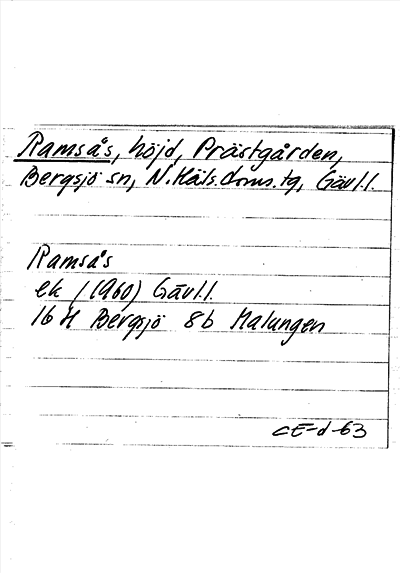 Ramsås, höjd, Prästgården,
Bergsjö sn, N.Häls.doms.tg, Gävl.l.
Ramsås
ek / (1960) Gävl.l.
16 H Bergsjö 8b Malungen
CE-d-63